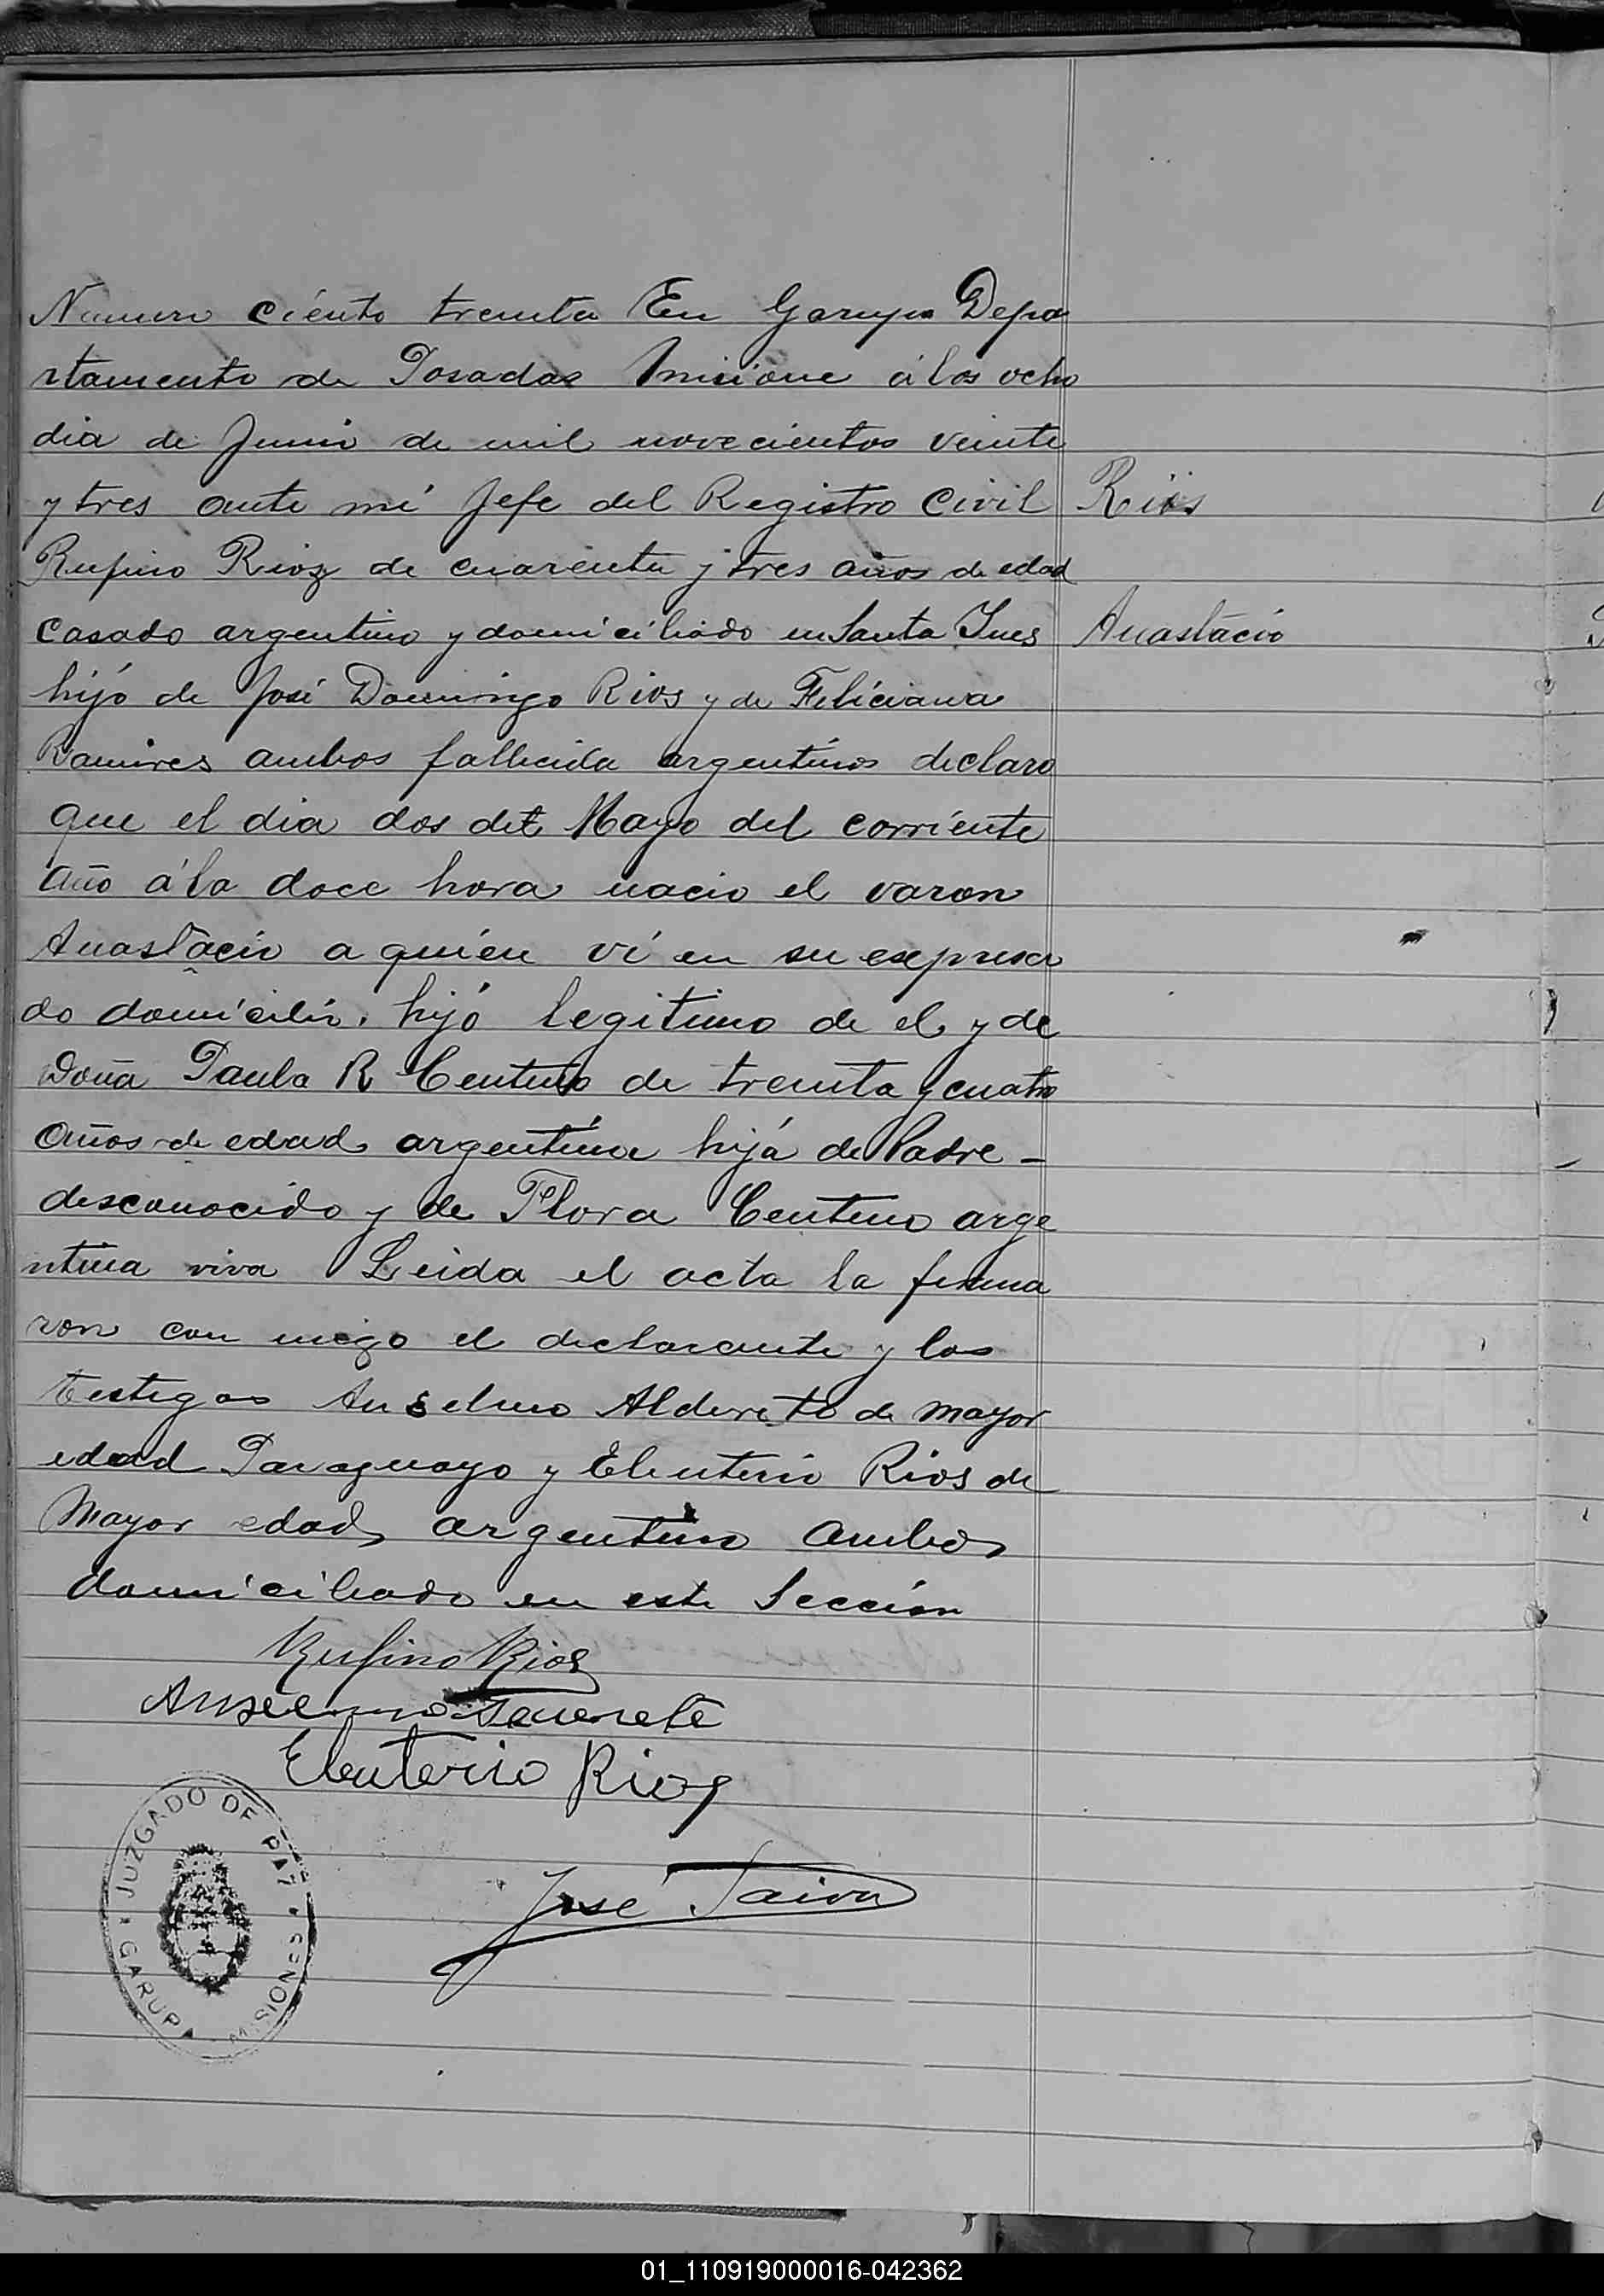 Numero ciento treinta En Garupa Depa
rtamento de Posadas Misione á los ocho
dia de Junio de mil novecientos veinte
y tres ante mí Jefe del Registro Civil
Rios
Rufino Rioz de cuarenta y tres años de edad
casado argentino y domiciliado en Santa Ines
Anastacio
hijo de José Domingo Rios y de Feliciana
Ramires ambos fallecida argentinos declaro
que el dia dos det Mayo del corriente
año á la doce hora nacio el varon
Anastacio a quien ví en su expresa
do domicilio. hijó legitimo de el y de
Doña Paula R Centeno de treinta y cuatro
años de edad argentina hijá de Padre -
desconocido y de Flora Centeno arge
ntina viva Leida el acta la firma
ron con migo el declarante y los
testigos Anselmo Aldereto de mayor
edad Paraguayo y Eleuterio Rios de
Mayor edad argentino ambos
domiciliado en este Sección
Rufino Rios
Anselmo
Eleuterio Rios
José Paiva
JUZGADO DE PAZ
GARUPA - MISIONES
01_110919000016-042362